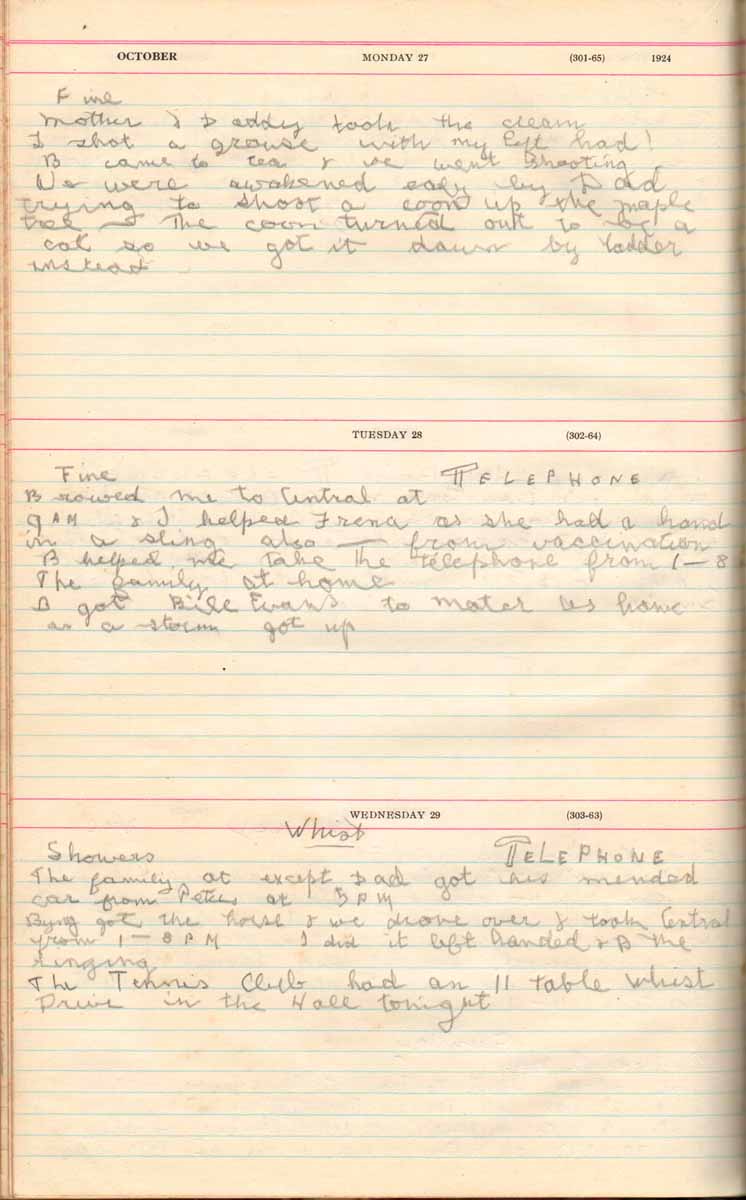 OCTOBER MONDAY 27 (301-65) 1924
Fine
Mother & Daddy took the cream
I shot a grouse with my left had!
B came to tea & we went shooting
We were awakened early by Dad
trying to shoot a coon up the maple
tree — The coon turned out to be a
cat so we got it down by ladder
instead
TUESDAY 28 (302-64)
Fine TELEPHONE
B rowed me to Central at
9 AM & I helped Frena as she had a hand
in a sling also — from vaccination
B helped me take the telephone from 1 — 8
The family at home
B got Bill Evans to motor us home
as a storm got up
WEDNESDAY 29 (303-63)
Whist
Showers TELEPHONE
The family at except Dad got his mended
car from Peters at 5 PM
Byng got the horse & we drove over & took Central
from 1 — 8 PM I did it left handed & B the
ringing
The Tennis Club had an 11 table Whist
Drive in the Hall tonight